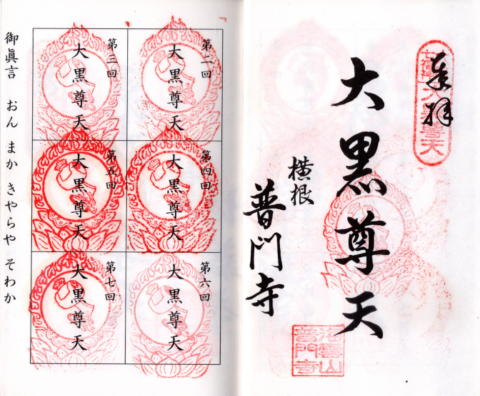 奉拝
大黒尊天
横根
普門寺
第二回
大黒尊天
第三回
大黒尊天
第四回
大黒尊天
第五回
大黒尊天
第六回
大黒尊天
第七回
大黒尊天
御眞言 おん まか きゃらや そわか